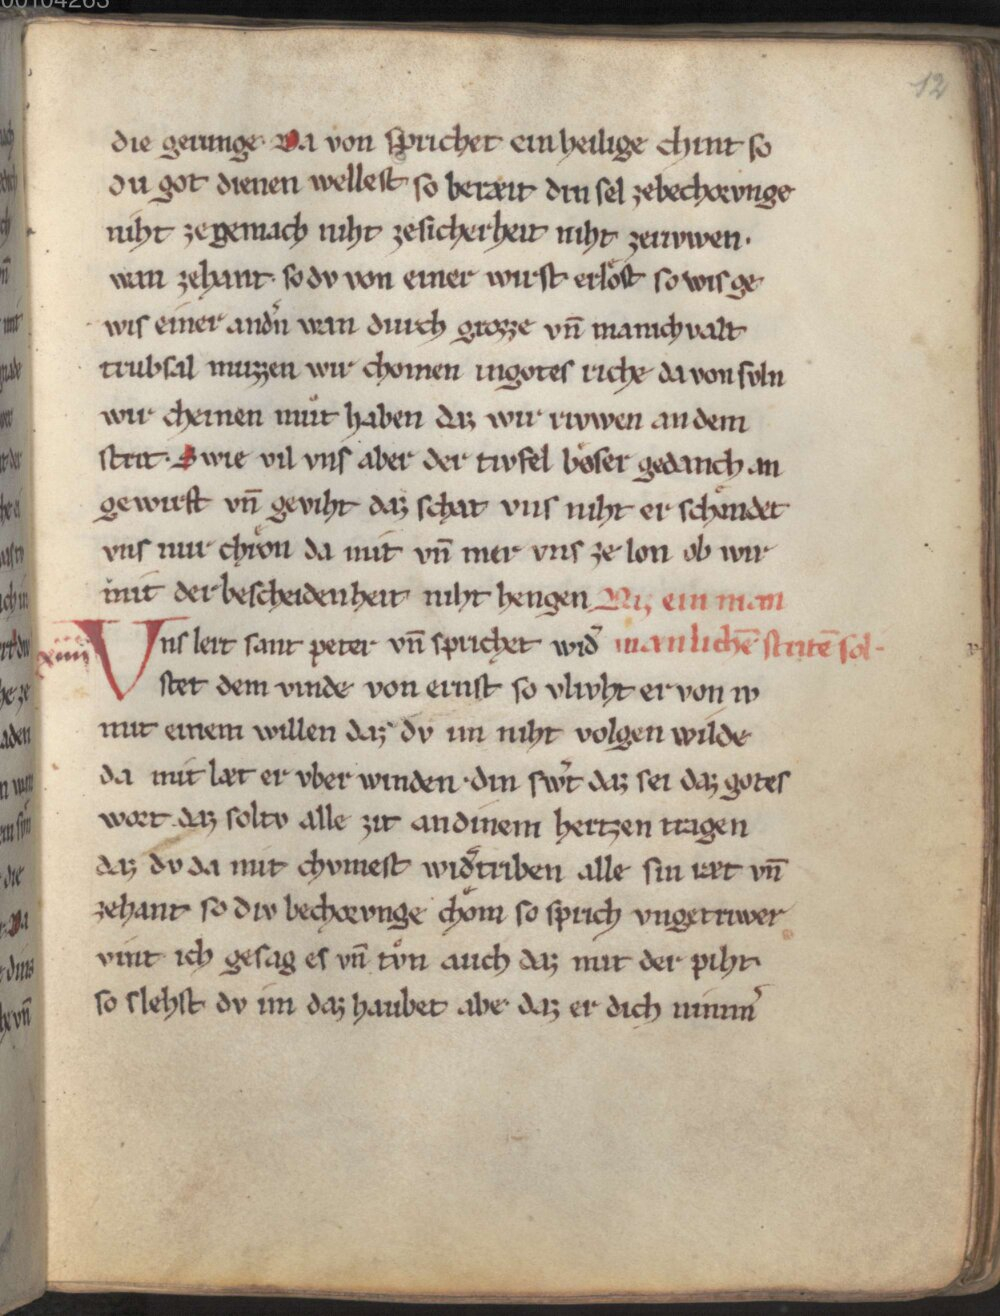 12
die gerunge. Da von sprichet ein heilige chint so
du got dienen wellest so beræit din sel ze bechorvnge
niht ze gemach niht ze sicherheit niht ze rvwen.
wan zehant so dv von einer wirst erlost so wis ge
wis einer andn̄ wan durch grozze vn̄ manichvalt
trubsal muzzen wir chomen in gotes riche da von svln
wir cheinen můt haben daz wir rivwen an dem
strit. Swie vil vns aber der tivfel bôser gedanch an
gewirft vn̄ geviht daz schat vns niht er schendet
vns nur chrôn da mit vn̄ mer vns ze lon ob wir
mit der bescheidenheit niht hengen Wiz ein man
xiiii
Vns lert sant peter vn̄ sprichet wid͛ manlichē stritē sol-
stet dem vinde von ernst so vlivht er von iv
mit einem willen daz dv im niht volgen wilde
da mit læt er vber winden. din sw͛t daz sei daz gotes
wort. daz soltv alle zit an dinem hertzen tragen
daz dv da mit chvmest wid͛triben alle sin ræt vn̄
zehant so div bechorvnge chôm so sprich vngetriwer
vint ich gesag es vn̄ tvͦn auch daz mit der piht
so slehst dv im daz haubet abe daz er dich nimm͛